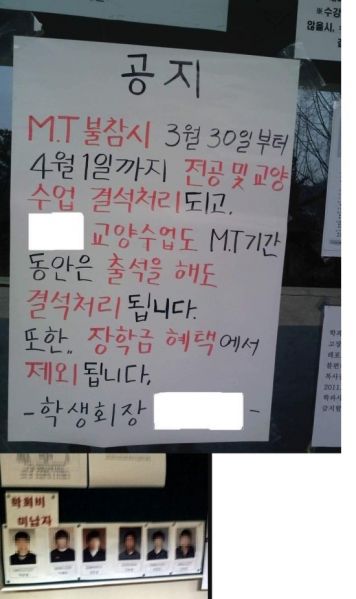 공지
M.T 불참시 3월 30일부터
4월 1일까지 전공 및 교양
수업 결석처리 되고,
교양수업도 M.T 기간
동안은 출석을 해도
결석처리 됩니다.
또한.. 장학금 혜택에서
제외 됩니다.
-학생회장 -
※수강
않을시,
학과
2011.
학회비
미납자